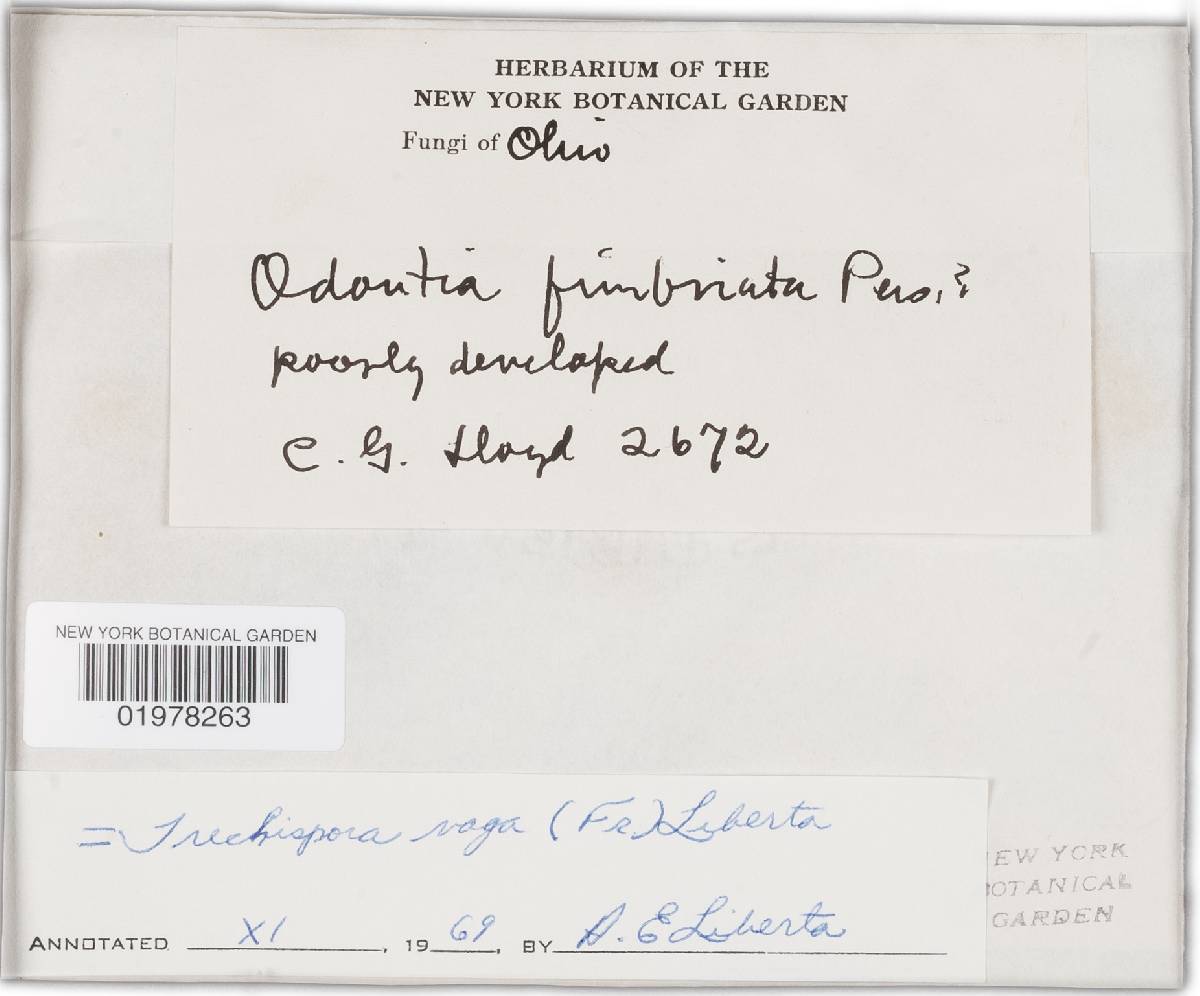 HERBARIUM OF THE
NEW YORK BOTANICAL GARDEN
Fungi of Ohio
Odontia fimbriata Pers.?
poorly developed
C. G. Lloyd 2672
NEW YORK BOTANICAL GARDEN
01978263
= Trechispora vaga (Fr.) Liberta
EW YORK
BOTANICAL
GARDEN
ANNOTATED XI, 19 69, BY A. E Liberta